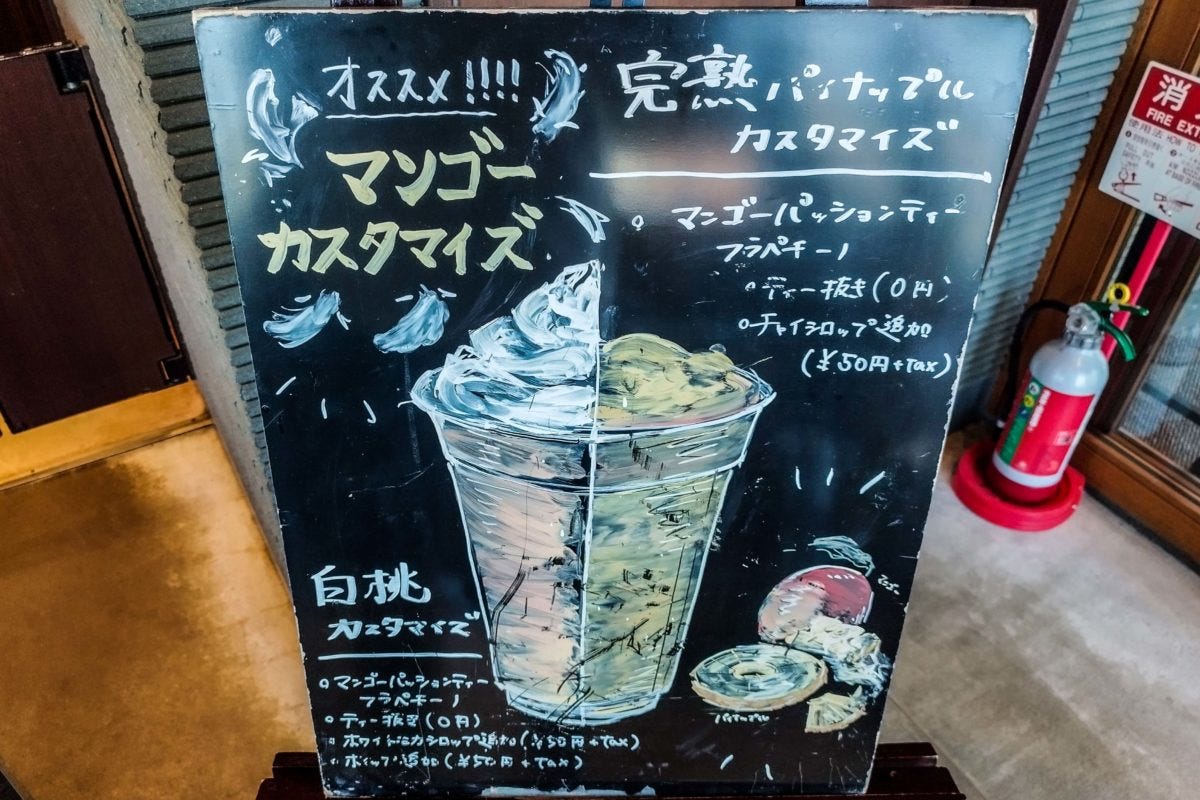 オススメ!!!!
マンゴー
カスタマイズ
完熟パイナップル
カスタマイズ
○ マンゴーパッションティー
フラペチーノ
○ ティー抜き(0円)
○ チャイシロップ追加
(¥50円+tax)
白桃
カスタマイズ
○ マンゴーパッションティー
フラペチーノ
○ ティー抜き(0円)
○ ホワイトモカシロップ追加(¥50円+tax)
○ ホイップ追加(¥50円+tax)
マンゴー
パイナップル
消
FIRE EXT
使用法 HOW TO